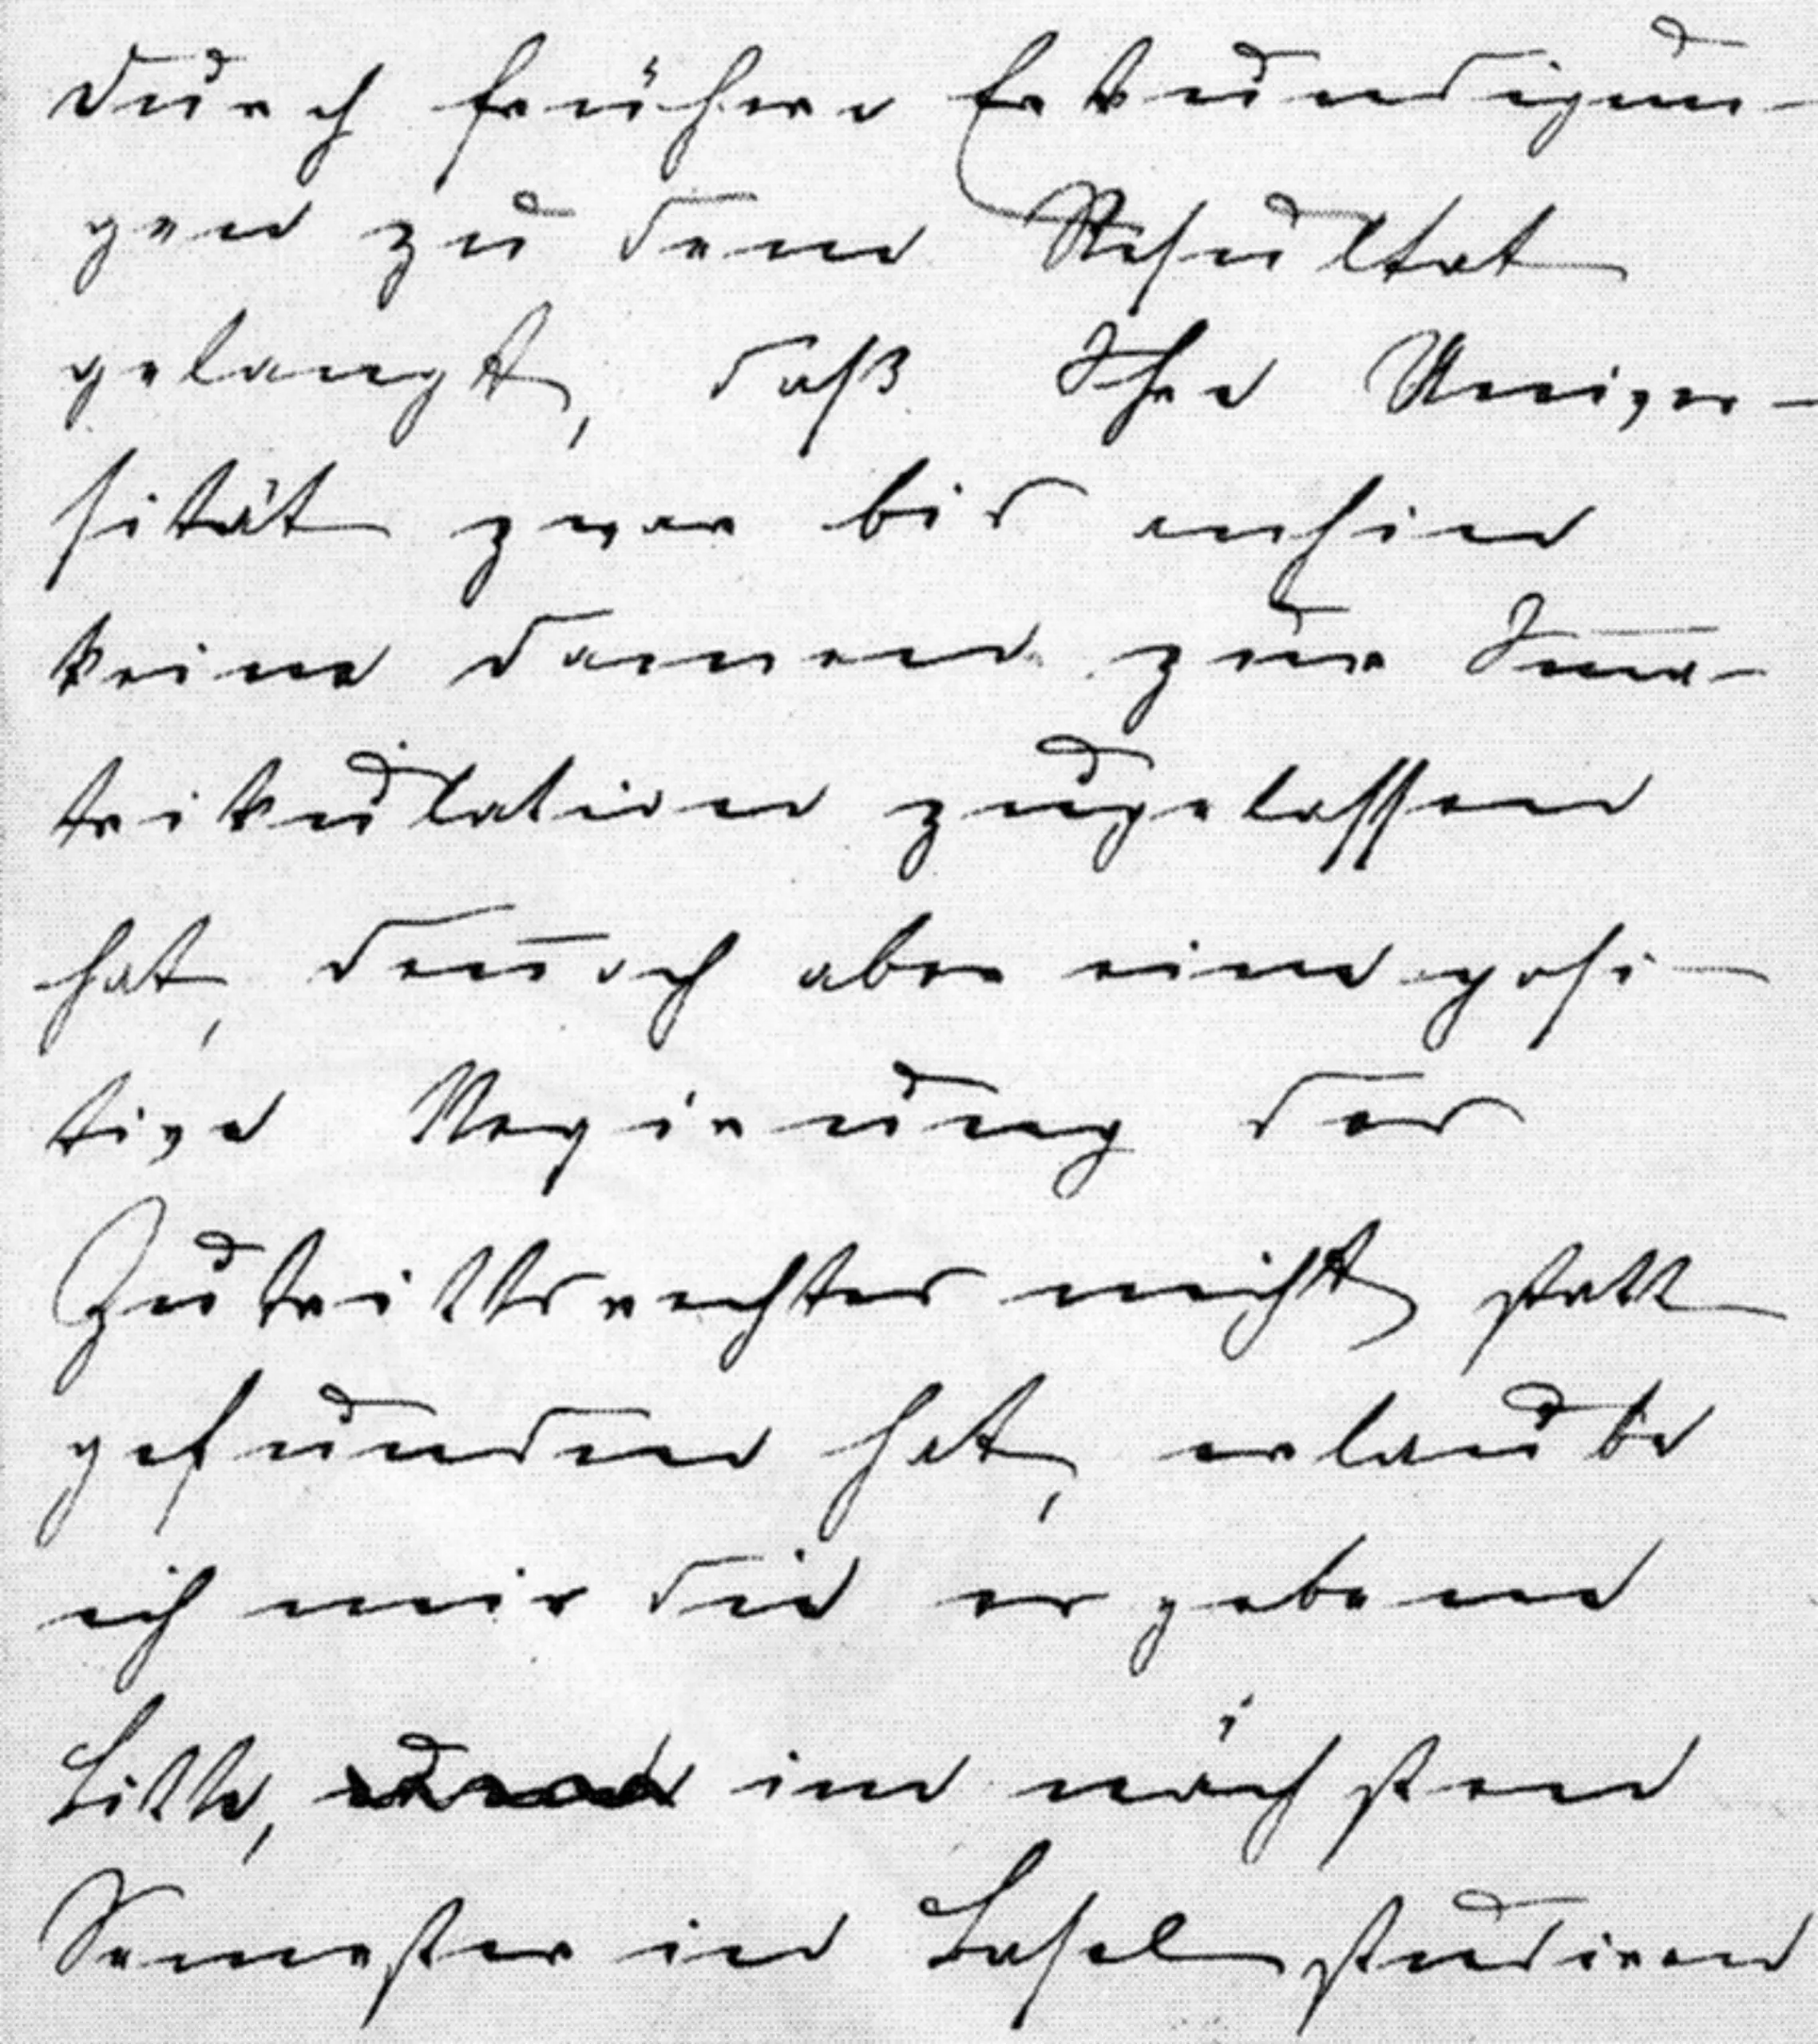 durch frühere Erkundigun-
gen zu dem Resultat
gelangt, daß Ihre Univer-
sität zwar bis anhin
keine Damen zur Im̅a-
trikulation zugelassen
hat, den̅och aber eine posi-
tive Negierung des
Zutrittsrechtes nicht statt
gefunden hat, erlaube
ich mir die ergebene
Bitte, im nächsten
Semester in Basel studieren